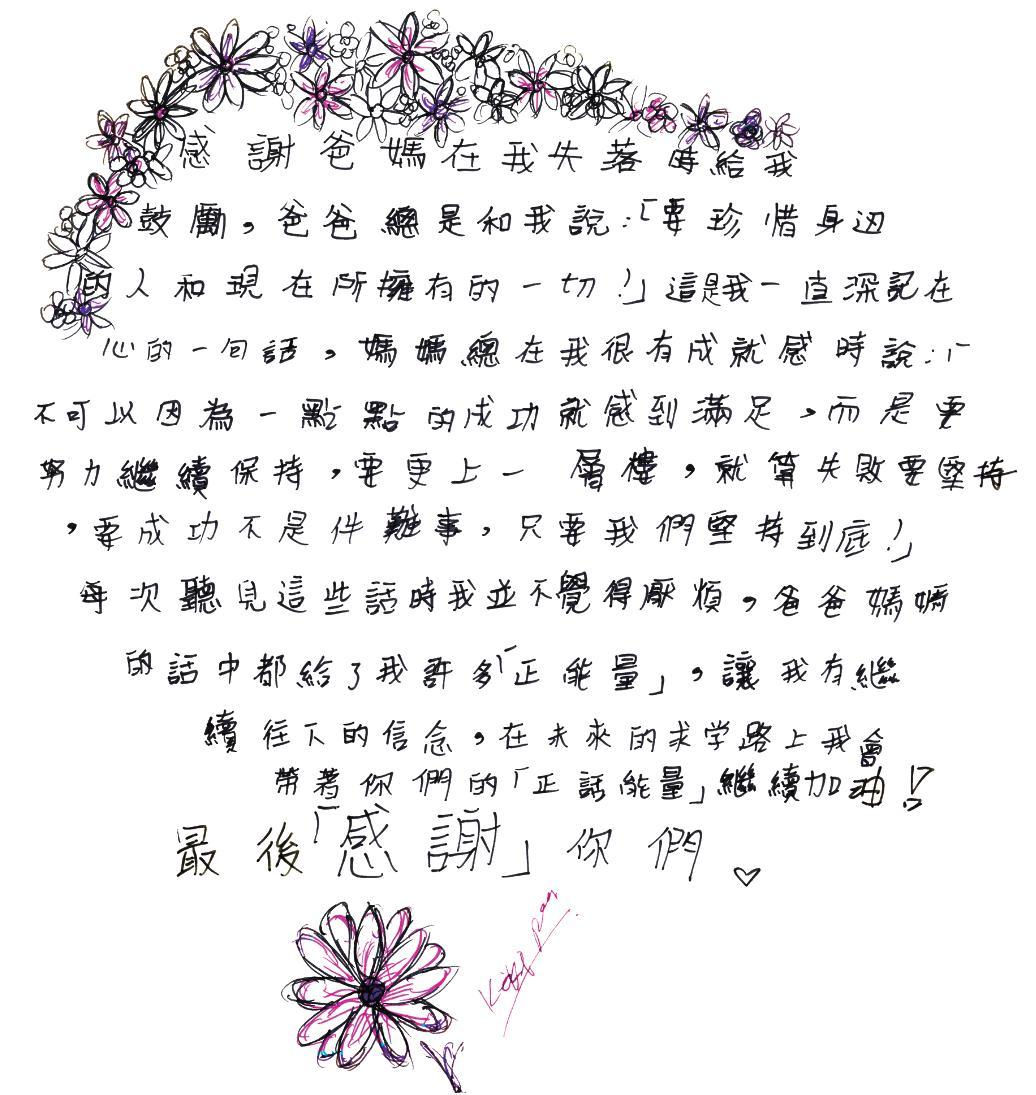 感謝爸媽在我失落時給我
鼓勵，爸爸總是和我說：「要珍惜身边
的人和現在所擁有的一切！」這是我一直深記在
心的一句話，媽媽總在我很有成就感時說：「
不可以因為一點點的成功就感到滿足，而是要
努力繼續保持，要更上一層樓，就算失敗要堅持
，要成功不是件難事，只要我們堅持到底！」
每次聽見這些話時我並不覺得厭煩，爸爸媽媽
的話中都給了我許多「正能量」，讓我有繼
續往下的信念，在未來的求学路上我會
帶著你們的「正話能量」繼續加油！
最後「感謝」你們♡